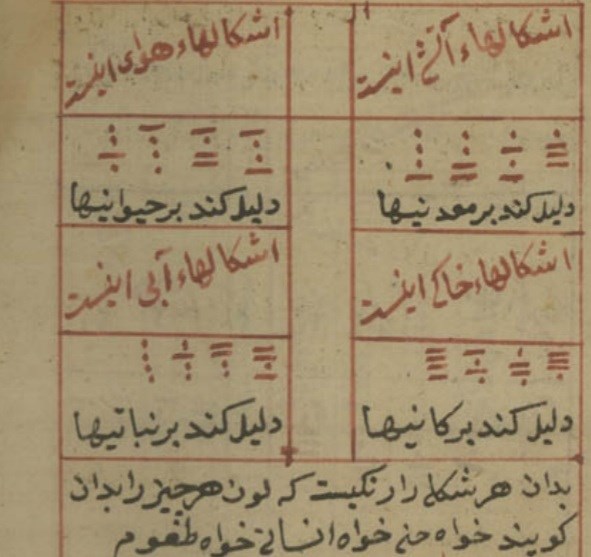 اشکالهاء آتش اینست
اشکالهاء هوای اینست
دلیل کند بر معدنیها
دلیل کند بر حیوانیها
اشکالهاء خاکی اینست
اشکالهاء آبی اینست
دلیل کند بر کانیها
دلیل کند بر نباتیها
بدان هر شکلی را رنکیست که لون هر چیز را بدان
کویند خواه جنی خواه انسانی خواه